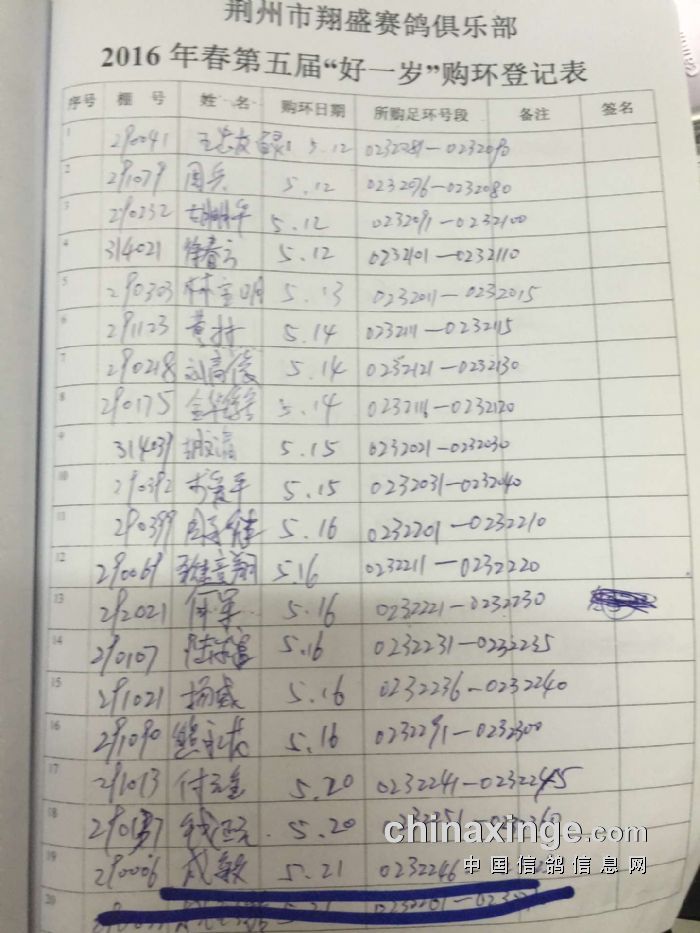 荆州市翔盛赛鸽俱乐部
2016年春第五届“好一岁”购环登记表
序号 棚号 姓名 购环日期 所购足环号段 备注 签名
1 290041 5.12 0232081—0232090
2 291079 周兵 5.12 0232076—0232080
3 290232 5.12 0232091—0232100
4 314021 5.12 0232101—0232110
5 290303 5.13 0232011—0232015
6 291123 5.14 0232111—0232115
7 290218 刘高俊 5.14 0232121—0232130
8 290175 5.14 0232116—0232120
9 314039 5.15 0232021—0232030
10 290392 5.15 0232031—0232040
11 290399 5.16 0232201—0232210
12 290069 5.16 0232211—0232220
13 292021 何军 5.16 0232221—0232230
14 290107 5.16 0232231—0232235
15 291021 杨威 5.16 0232236—0232240
16 291090 5.16 0232291—0232300
17 291013 5.20 0232241—0232245
18 5.20
19 290006 成敏 5.21 0232246
20
chinaxinge.com
中国信鸽信息网